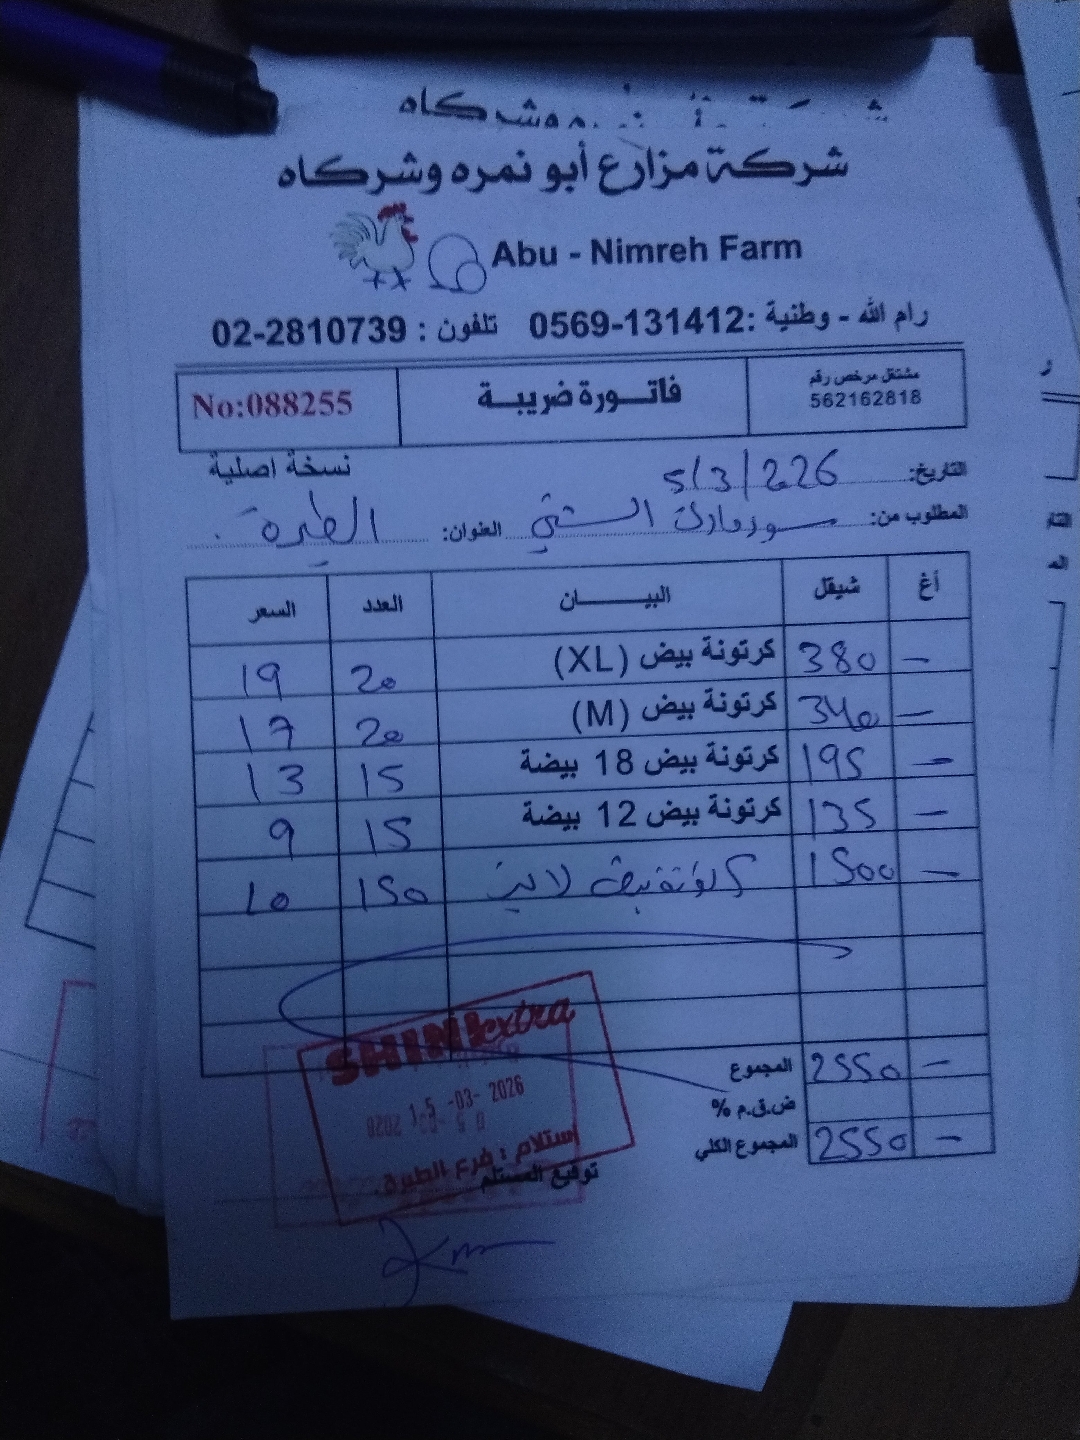 شركة مزارع أبو نمره وشركاه
Abu - Nimreh Farm
رام الله - وطنية :0569-131412 تلفون : 02-2810739
مشتغل مرخص رقم
562162818
فاتورة ضريبة
No:088255
نسخة اصلية
التاريخ: 5/3/2026
المطلوب من: سوبرمارك الشني العنوان: الطيرة
أغ شيقل البيـــــان العدد السعر
- 380 كرتونة بيض (XL) 20 19
- 340 كرتونة بيض (M) 20 17
- 195 كرتونة بيض 18 بيضة 15 13
- 135 كرتونة بيض 12 بيضة 15 9
- 1500 كرتونة بيض 150 10
المجموع 2550 -
ض.ق.م %
المجموع الكلي 2550 -
SHINI extra
-03- 2026
إستلام : فرع الطيرة.
توقيع المستلم